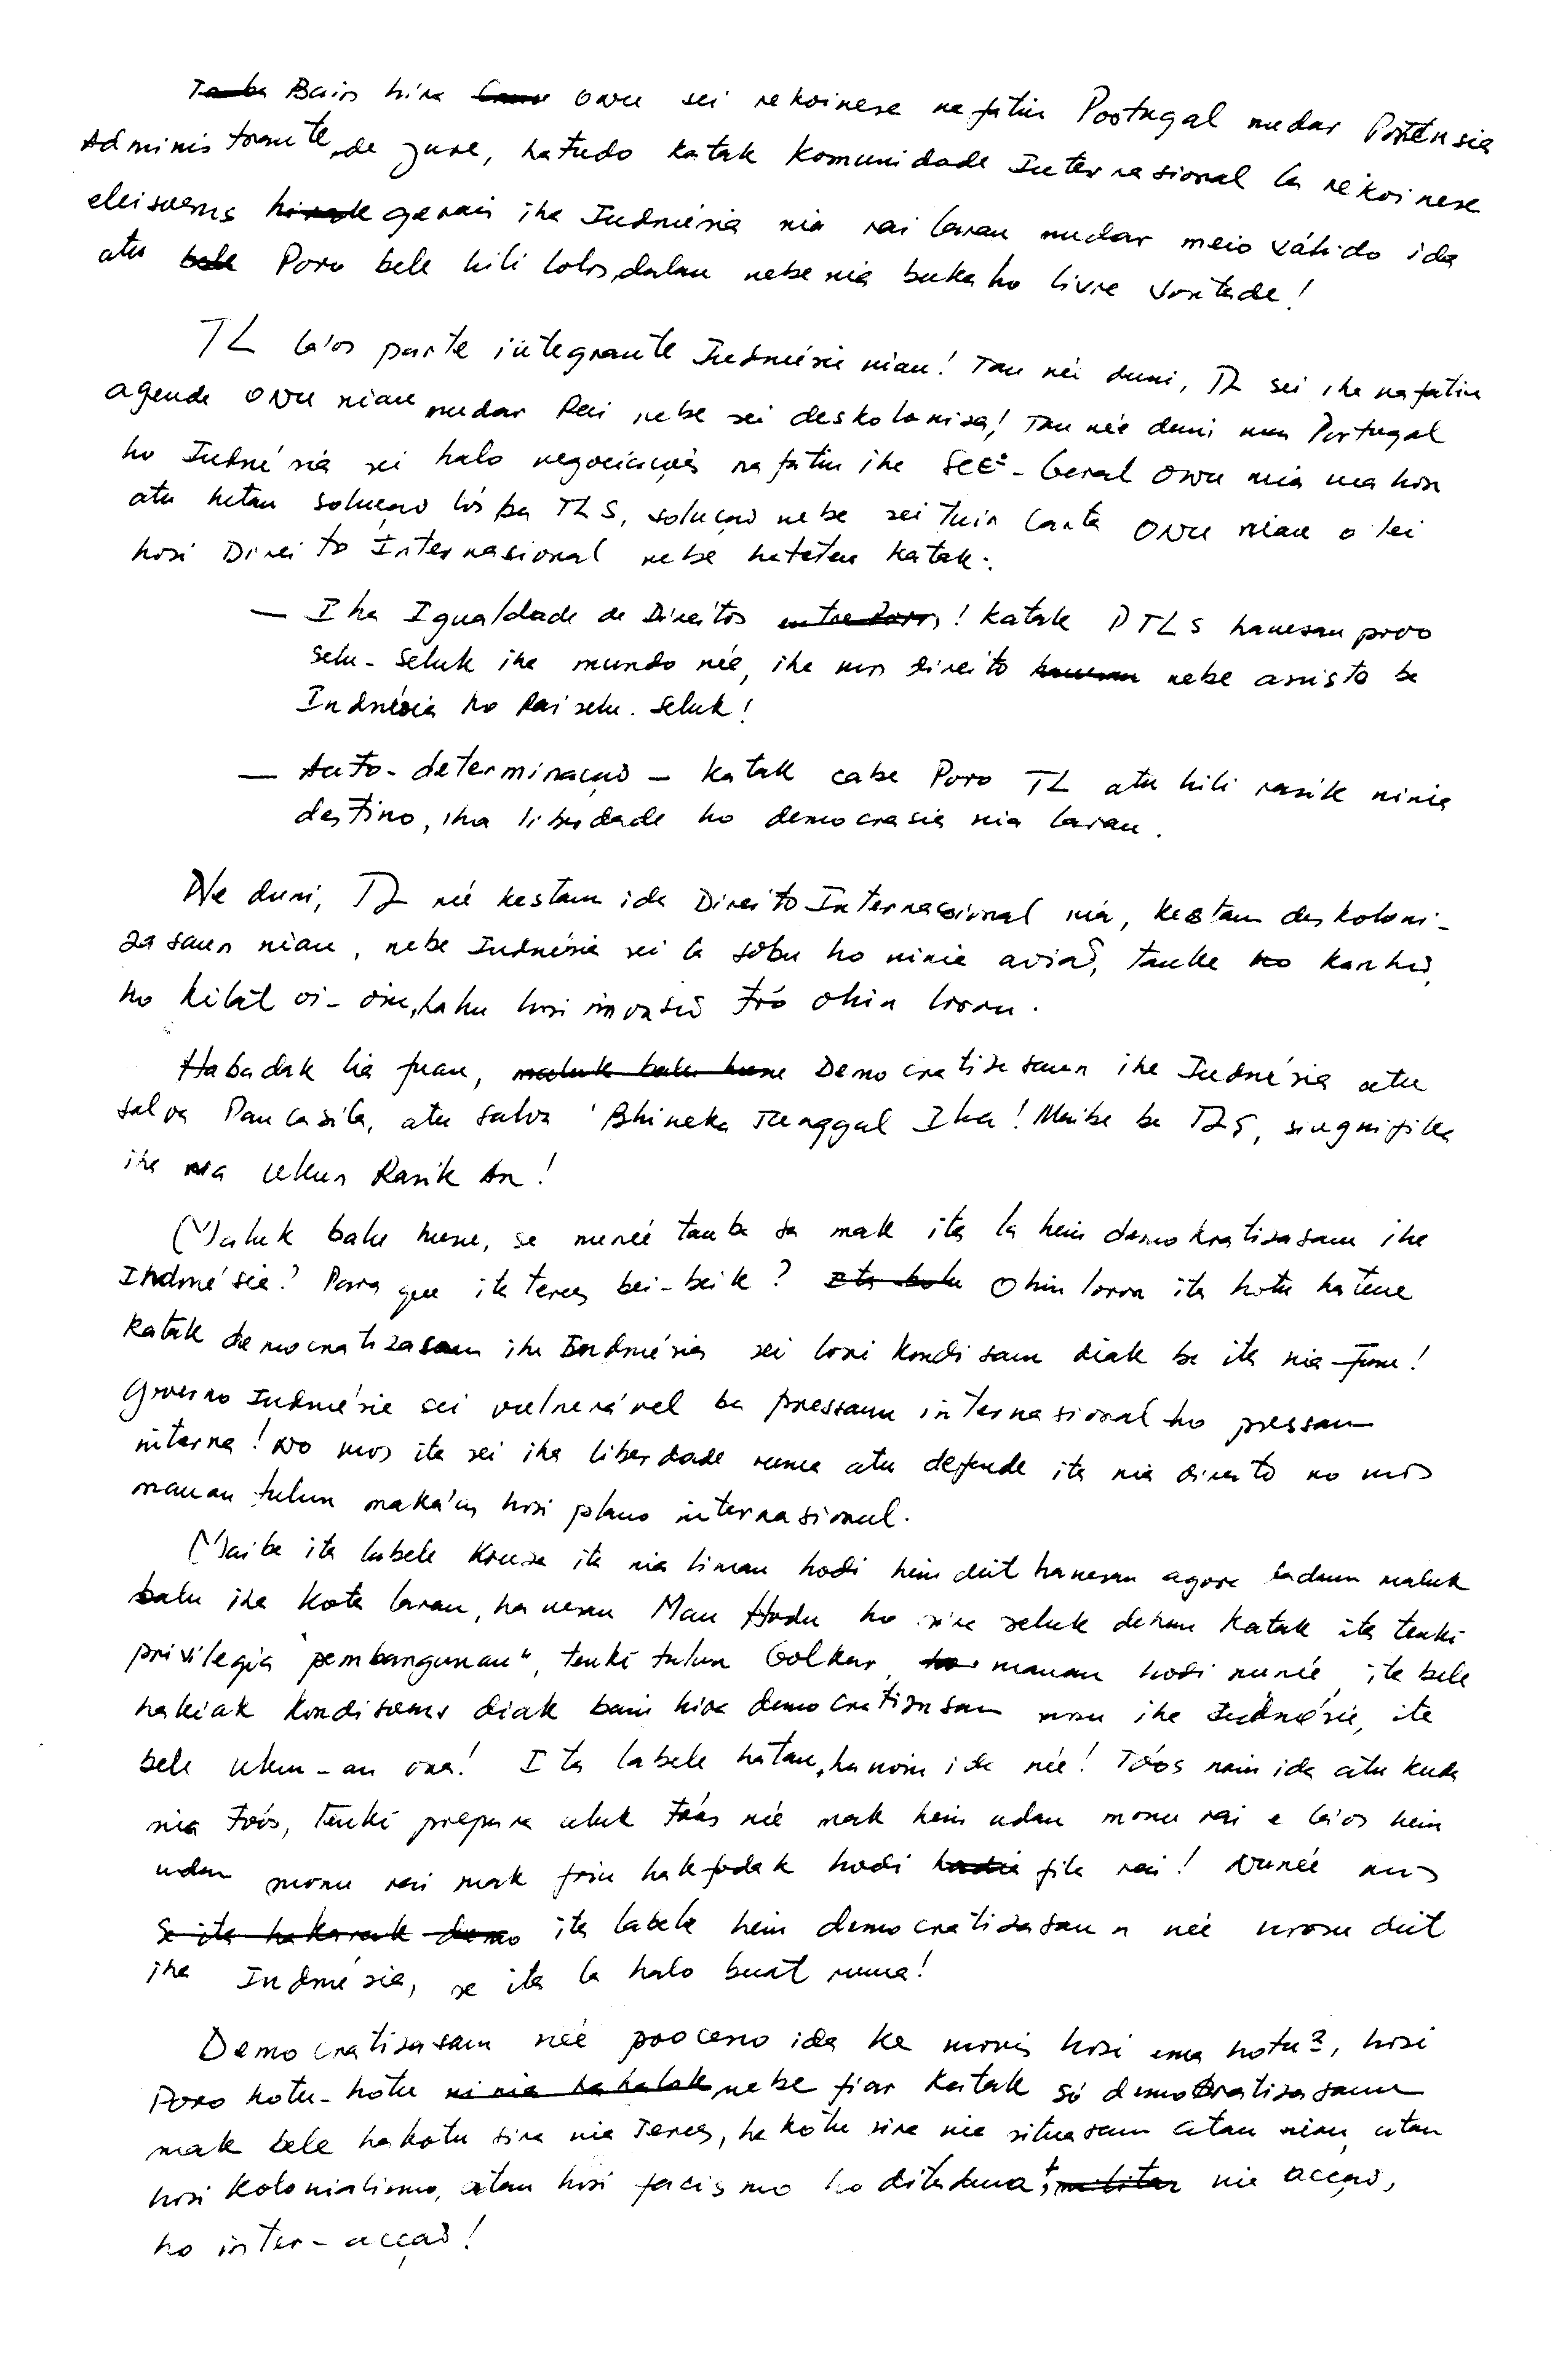 Bain hira ONU sei rekoinese nafatin Portugal nudar Potensia
Administrante de jure, hatudo katak Komunidade Internasional la rekoinese
eleisoens gerais iha Indonésia nia rai laran nudar meio válido ida
atu Povo bele hili lolos dalan nebe nia buka ho livre vontade!
TL la'os parte integrante Indonésia nian! Tan néé duni, TL sei iha nafatin
agenda ONU nian nudar Rai nebe sei deskoloniza! Tan néé duni mos Portugal
ho Indonésia sei halo negociações nafatin iha Secº-Geral ONU nia mahon
atu hetan solução lós ba TLS, solução nebe sei tuir Carta ONU nian o lei
hosi Direito Internasional nebe hateten katak:
— Iha Igualdade de Direitos ! Katak PTLS hanesan povo
selu-seluk iha mundo néé, iha mos direito nebe assisto ba
Indonésia ho Rai selu-seluk!
— Auto-determinação — Katak cabe Povo TL atu hili rasik ninia
destino, iha liberdade ho democrasia nia laran.
Ne duni, TL néé kestam ida Direito Internasional nia, kestam deskoloni-
zasaun nian, nebe Indonésia sei la sobu ho ninia aviaõ, tanke kanhaõ,
ho kilat oi-oin, hahu hosi invasaõ tó ohin loron.
Habadak lia fuan, Democratizasaun iha Indonésia atu
salva Pancasila, atu salva 'Bhineka Tunggal Ika! Maibe ba TLS, singnifika
iha nia Ukun Rasik An!
Maluk balu husu, se nunéé tanba sa mak ita la hein demokratizasaun iha
Indonésia? Para que ita terus bei-beik? Ohin loron ita hotu hatene
katak democratizasaun iha Indonésia sei lori kondisaun diak ba ita nia funu!
Governo Indonésia sei vulnerável ba pressaun internasional ho pressaun
interna! No mos ita sei iha liberdade ruma atu defende ita nia direito no mos
manan tulun maka'as hosi plano internasional.
Maibe ita labele kruza ita nia liman hodi hein deit hanesan agora ladun maluk
balu iha kota laran, hanesan Mau Hodu ho sira seluk dehan katak ita tenki
privilegia "pembangunan", tenki tulun Golkar manan hodi nunéé, ita bele
hakiak kondisoens diak bain hira democratizasaun mosu iha Indonésia, ita
bele ukun-an ona! Ita labele hatan, hanoin ida néé! To'os nain ida atu kuda
nia to'os, tenki prepara uluk to'os néé mak hein udan monu rai e la'os hein
udan monu rai mak foin hakfodak hodi fila rai! Nunéé mos
ita labele hein democratizasaun néé mosu deit
iha Indonésia, se ita la halo buat ruma!
Democratizasaun néé processo ida ke moris hosi ema hotu2, hosi
Povo hotu-hotu nebe fiar katak só demokratizasaun
mak bele hakotu sira nia terus, hakotu sira nia situasaun atan nian, atan
hosi kolonialismo, atan hosi facismo ho ditadura! nia acção,
ho inter-acção!